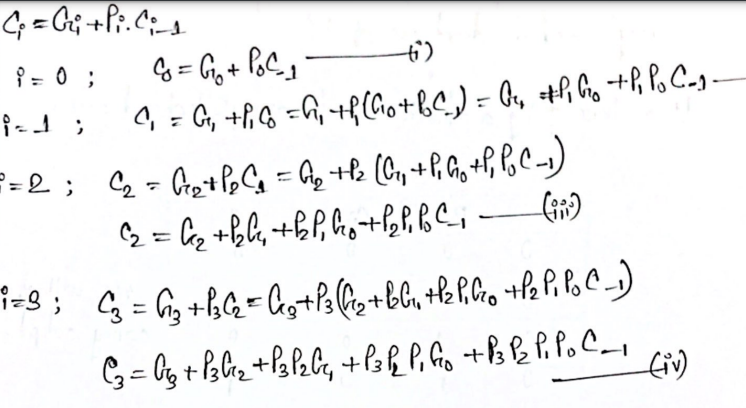 Cᵢ = Gᵢ + Pᵢ.Cᵢ₋₁
i = 0 ; C₀ = G₀ + P₀C₋₁ —— (i)
i = 1 ; C₁ = G₁ + P₁C₀ = G₁ + P₁(G₀ + P₀C₋₁) = G₁ + P₁G₀ + P₁P₀C₋₁ ——
i = 2 ; C₂ = G₂ + P₂C₁ = G₂ + P₂(G₁ + P₁G₀ + P₁P₀C₋₁)
C₂ = G₂ + P₂G₁ + P₂P₁G₀ + P₂P₁P₀C₋₁ —— (iii)
i = 3 ; C₃ = G₃ + P₃C₂ = G₃ + P₃(G₂ + P₂G₁ + P₂P₁G₀ + P₂P₁P₀C₋₁)
C₃ = G₃ + P₃G₂ + P₃P₂G₁ + P₃P₂P₁G₀ + P₃P₂P₁P₀C₋₁ —— (iv)